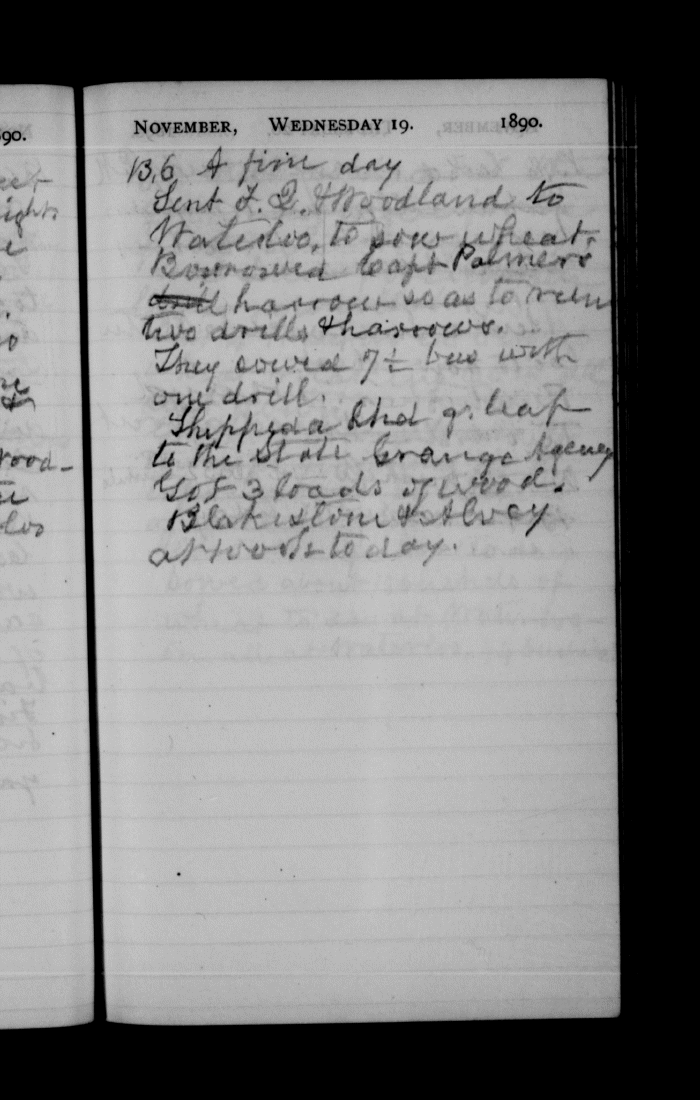 90.
NOVEMBER, WEDNESDAY 19. 1890.
B,6 A fine day
Sent J. Q. & Woodland to
Waterloo, to sow wheat.
Borrowed Capt Palmers
drill harrow so as to run
two drills & harrows.
They sowed 7½ bus with
one drill.
Shipped a hhd gr. leaf
to the State Grange Agency
Got 3 loads of wood.
Blakistone & Alvey
at work to day.